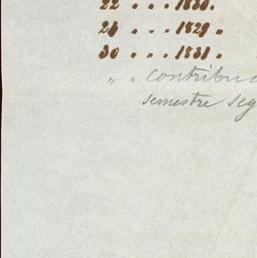 22 . . . 1830.
24 . . . 1829 „
30 . . . 1831 .
„ „ contribuc
semestre seg